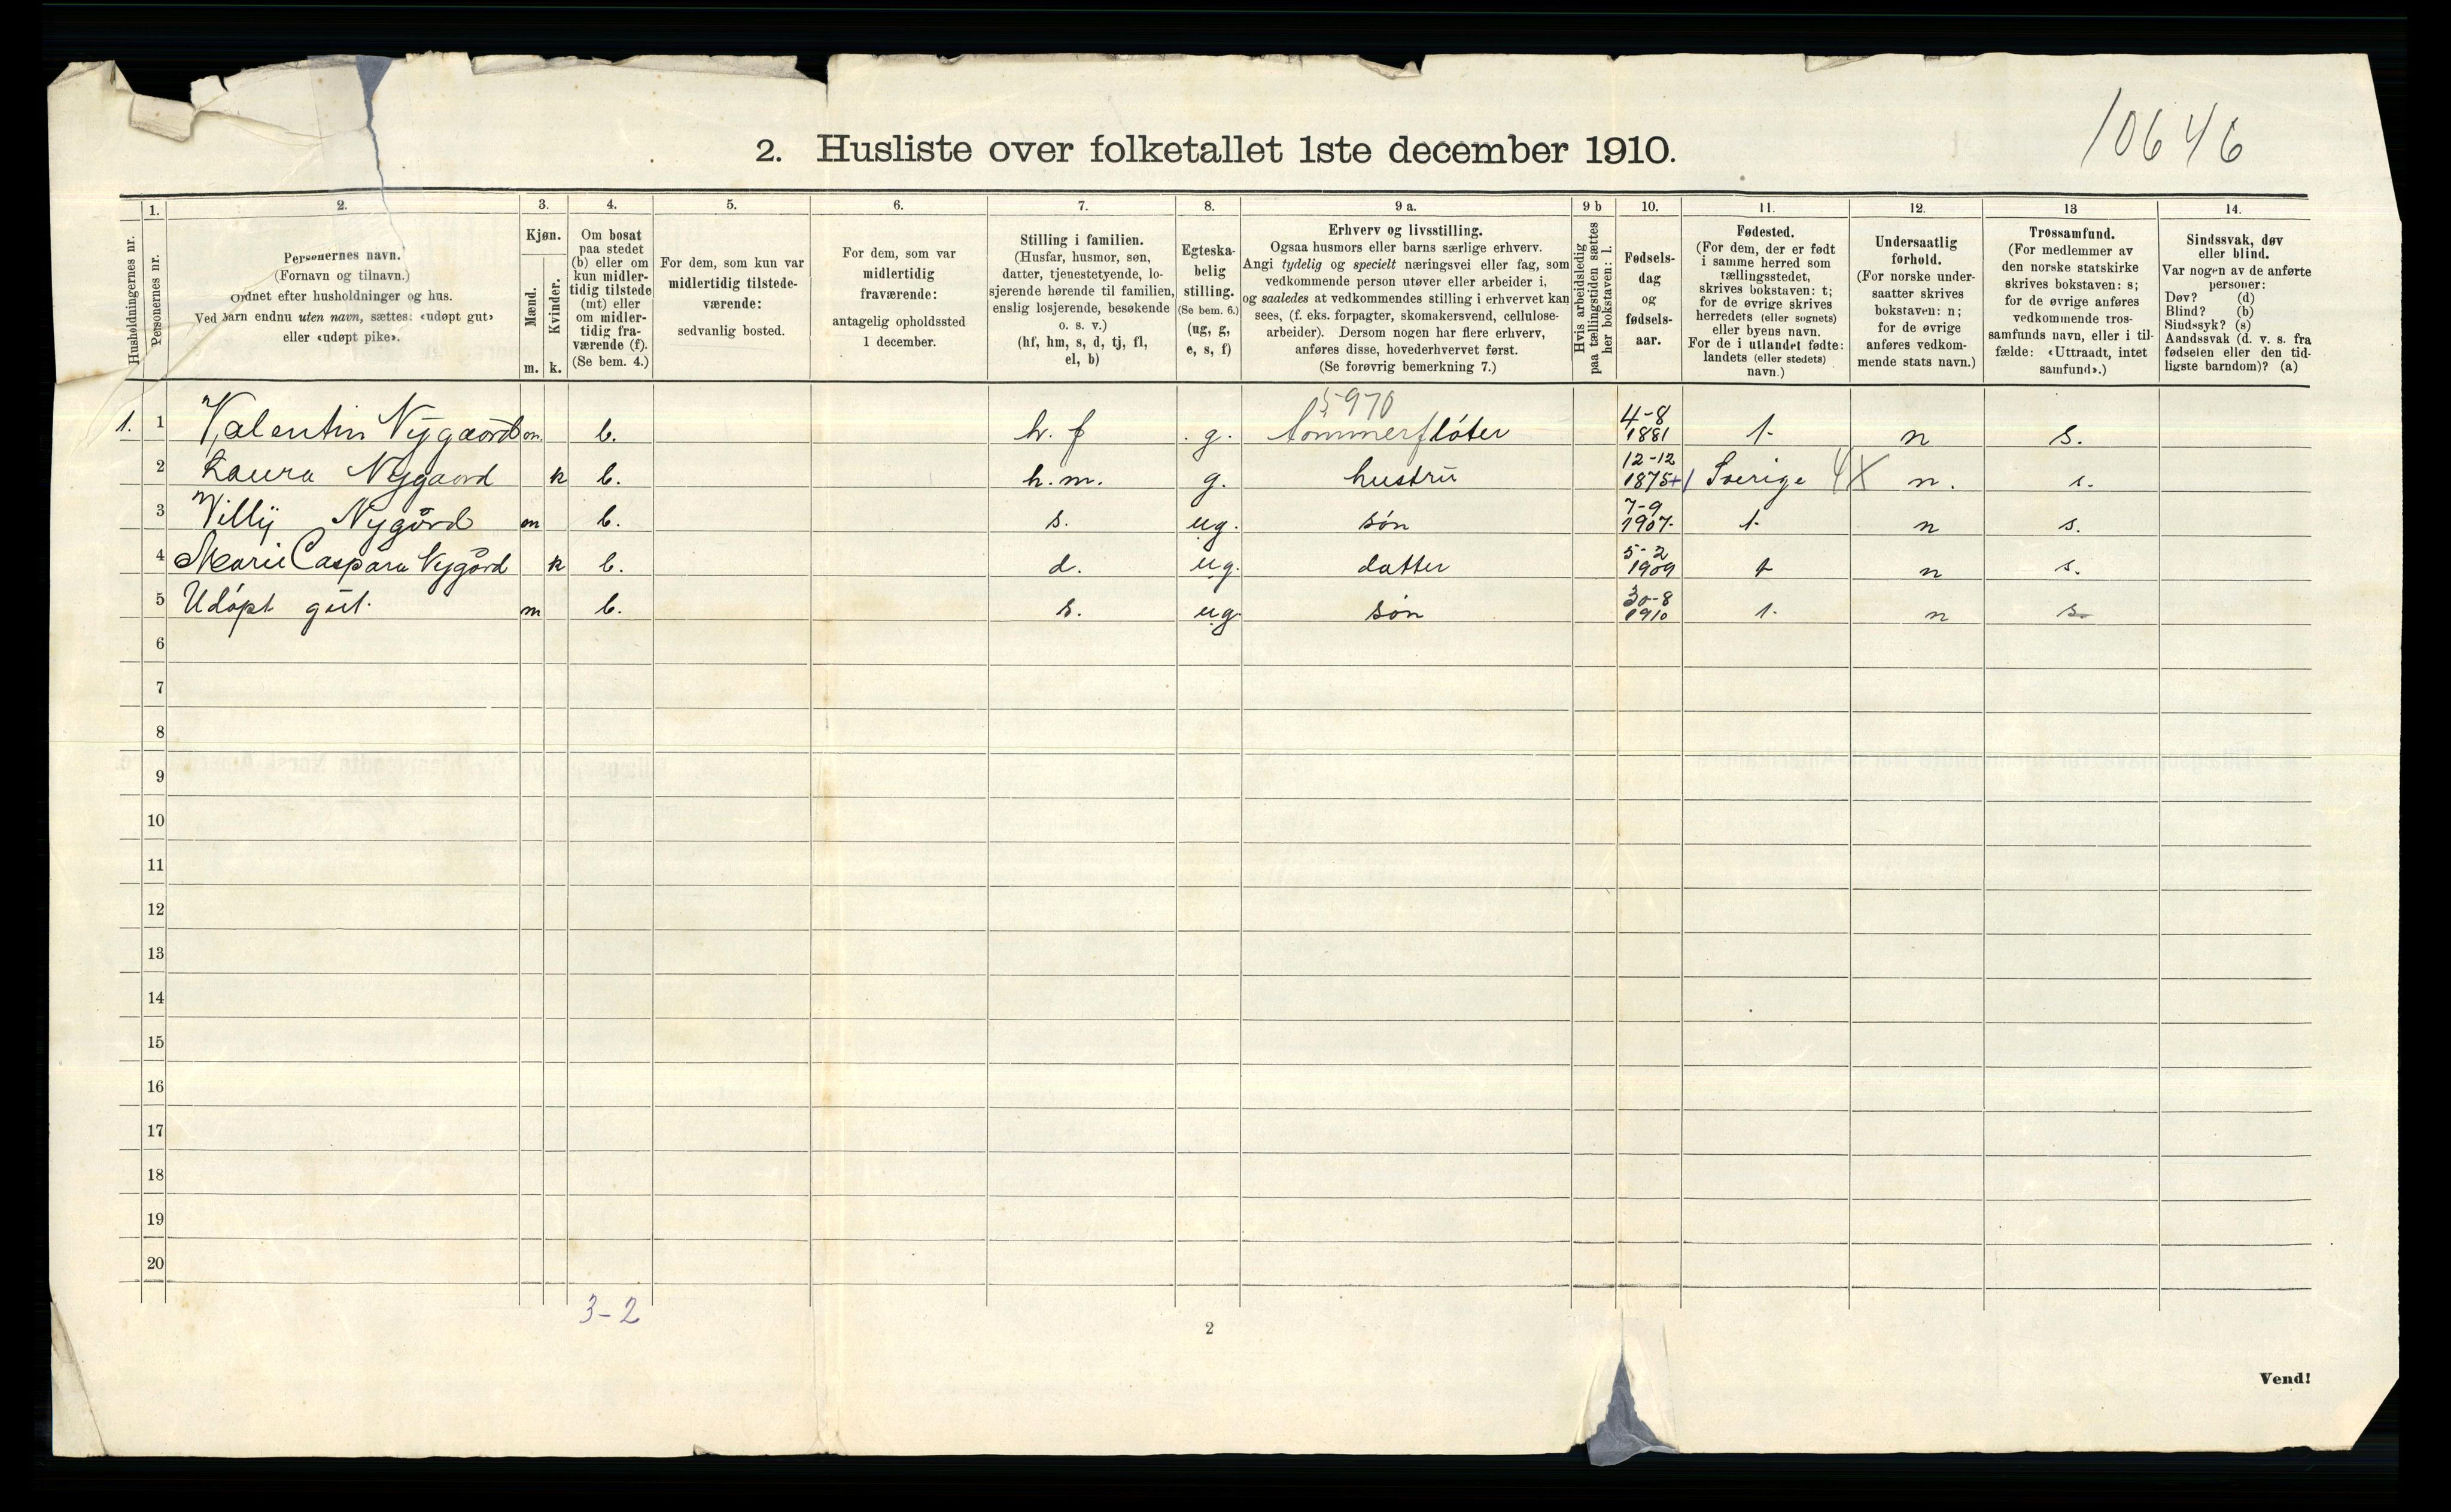 10646
2. Husliste over folketallet 1ste december 1910.
Husholdningernes nr.
1.
Personernes nr.
2.
Personernes navn.
(Fornavn og tilnavn.)
Ordnet efter husholdninger og hus.
Ved barn endnu uten navn, sættes: «udøpt gut»
eller «udøpt pike».
3.
Kjøn.
Mænd.
Kvinder.
m. k.
4.
Om bosat
paa stedet
(b) eller om
kun midler-
tidig tilstede
(mt) eller
om midler-
tidig fra-
værende (f).
(Se bem. 4.)
5.
For dem, som kun var
midlertidig tilstede-
værende:
sedvanlig bosted.
6.
For dem, som var
midlertidig
fraværende:
antagelig opholdssted
1 december.
7.
Stilling i familien.
(Husfar, husmor, søn,
datter, tjenestetyende, lo-
sjerende hørende til familien,
enslig losjerende, besøkende
o. s. v.)
(hf, hm, s, d, tj, fl,
el, b)
8.
Egteska-
belig
stilling.
(Se bem. 6.)
(ug, g,
e, s, f)
9 a.
Erhverv og livsstilling.
Ogsaa husmors eller barns særlige erhverv.
Angi tydelig og specielt næringsvei eller fag, som
vedkommende person utøver eller arbeider i,
og saaledes at vedkommendes stilling i erhvervet kan
sees, (f. eks. forpagter, skomakersvend, cellulose-
arbeider). Dersom nogen har flere erhverv,
anføres disse, hovederhvervet først.
(Se forøvrig bemerkning 7.)
9 b
Hvis arbeidsledig
paa tællingstiden sættes
her bokstaven: l.
10.
Fødsels-
dag
og
fødsels-
aar.
11.
Fødested.
(For dem, der er født
i samme herred som
tællingsstedet,
skrives bokstaven: t;
for de øvrige skrives
herredets (eller sognets)
eller byens navn.
For de i utlandet fødte:
landets (eller stedets)
navn.)
12.
Undersaatlig
forhold.
(For norske under-
saatter skrives
bokstaven: n;
for de øvrige
anføres vedkom-
mende stats navn.)
13
Trossamfund.
(For medlemmer av
den norske statskirke
skrives bokstaven: s;
for de øvrige anføres
vedkommende tros-
samfunds navn, eller i til-
fælde: «Uttraadt, intet
samfund».)
14.
Sindssvak, døv
eller blind.
Var nogen av de anførte
personer:
Døv? (d)
Blind? (b)
Sindssyk? (s)
Aandssvak (d. v. s. fra
fødselen eller den tid-
ligste barndom)? (a)
5970
1. 1 Valentin Nygaard m. b. h. f g. tømmerfløter 4-8 1881 t n s.
2 Laura Nygaard k b. h. m. g. hustru 12-12 1875 + Sverige n. s.
3 Villy Nygård m b. s. ug. søn 7-9 1907 t n s.
4 Marie Caspara Nygård k b. d. ug. datter 5-2 1909 t n s.
5 Udøpt gut. m b. s. ug. søn 30-8 1910 t n s
6
7
8
9
10
11
12
13
14
15
16
17
18
19
20
3-2
2
Vend!